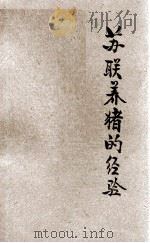 苏联养猪的经验
mtoou.info